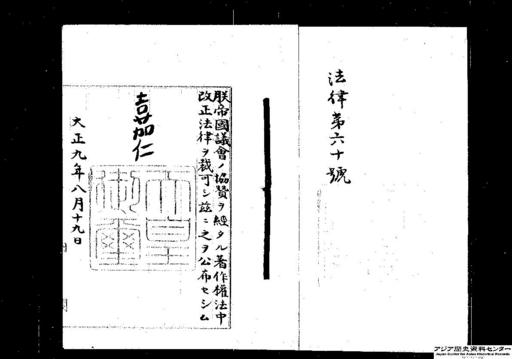 法律第六十號
朕帝國議會ノ協贊ヲ經タル著作權法中
改正法律ヲ裁可シ茲ニ之ヲ公布セシム
嘉仁
天皇
御璽
大正九年八月十九日
アジア歴史資料センター
Japan Center for Asian Historical Records